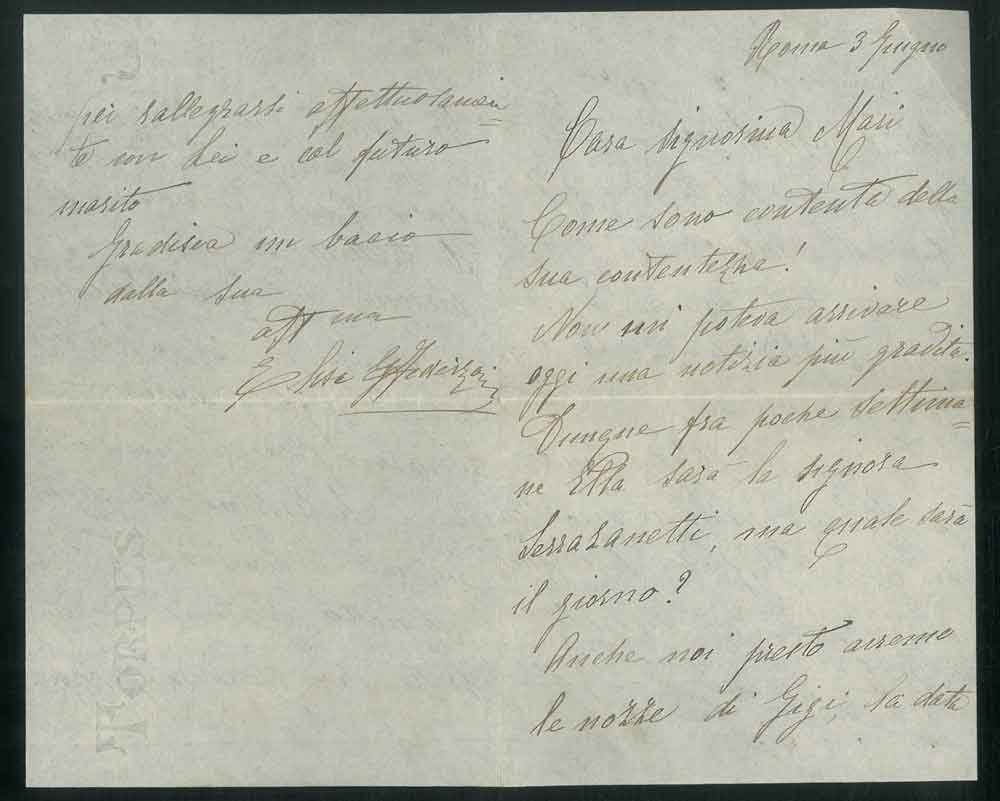 Roma 3 Giugno
Cara Signorina Mari
Come sono contenta della
sua contentezza!
Non mi poteva arrivare
oggi una notizia più gradita.
Dunque fra poche settima=
ne Ella sarà la signora
Serrazanetti, ma quale sarà
il giorno?
Anche noi presto avremo
le nozze di Gigi, la data
per rallegrarsi affettuosamen=
te con Lei e col futuro
marito
Gradisca un bacio
dalla sua
aff ma
Elisa Federzoni